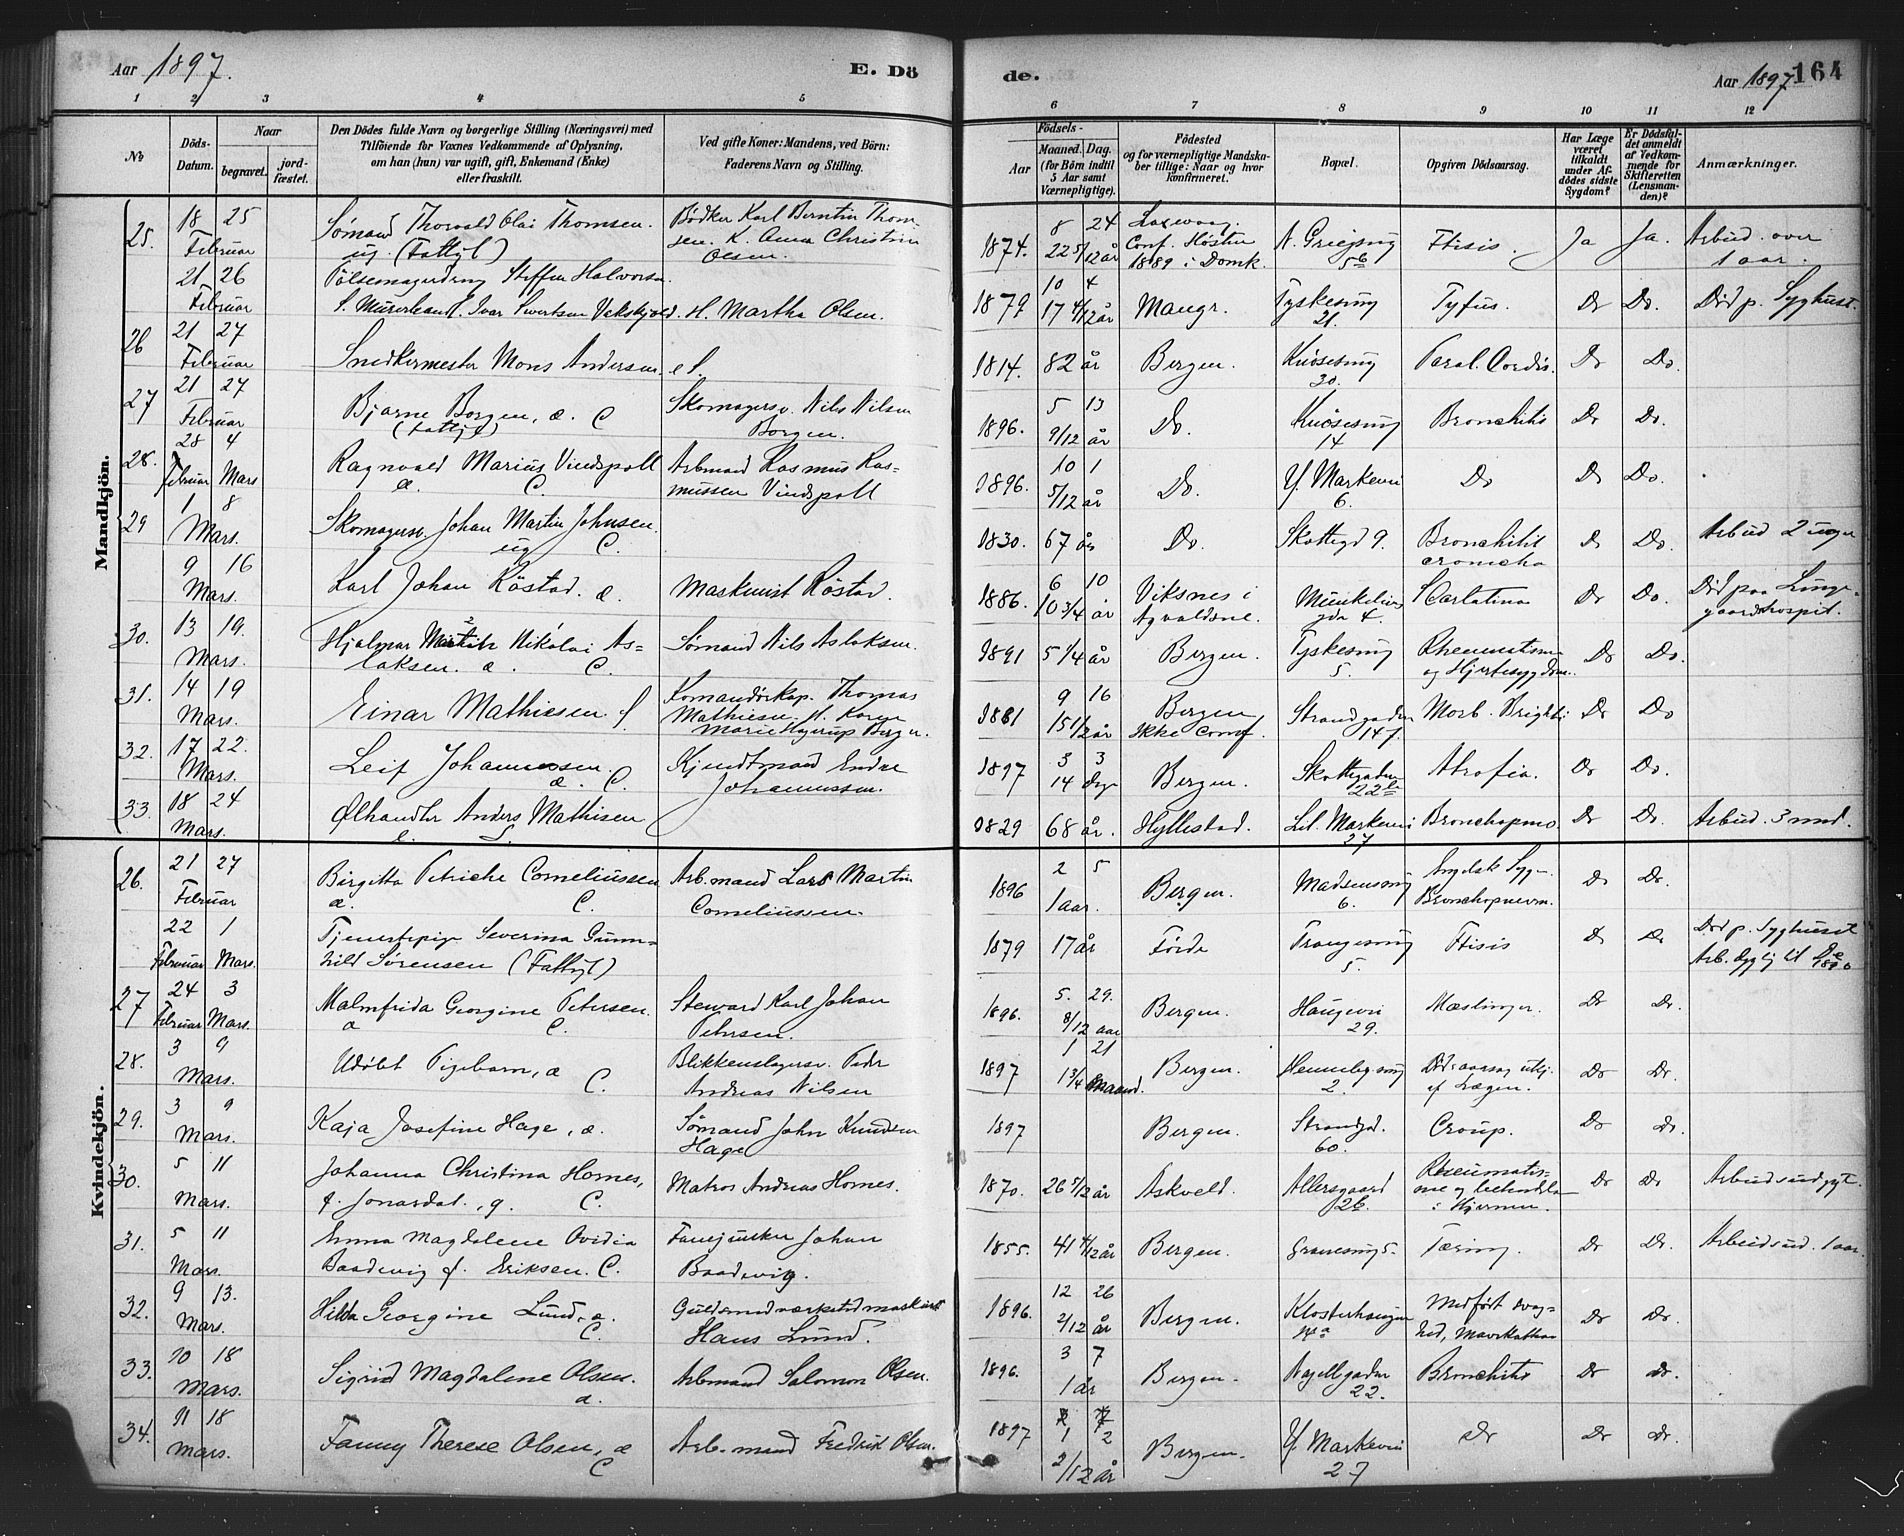 Aar 1897.
E. Dö
de.
Aar 1897.
164
1 2 3 4 5 6 7 8 9 10 11 12
No
Döds-
Datum.
Naar
begravet.
jord-
fæstet.
Den Dödes fulde Navn og borgerlige Stilling (Næringsvei) med
Tilföiende for Voxnes Vedkommende af Oplysning,
om han (hun) var ugift, gift, Enkemand (Enke)
eller fraskilt.
Ved gifte Koner: Mandens, ved Börn:
Faderens Navn og Stilling.
Födsels-
Aar
Maaned. Dag.
(for Börn indtil
5 Aar samt
Værnepligtige).
Födested
og for værnepligtige Mandska-
ber tillige: Naar og hvor
konfirmeret.
Bopæl.
Opgiven Dödsaarsag.
Har Læge
været
tilkaldt
under Af-
dödes sidste
Sygdom?
Er Dödsfal-
det anmeldt
af Vedkom-
mende for
Skifteretten
(Lensman-
den)?
Anmærkninger.
Mandkjön.
25. 18 25 Februar
Sømand Thorvald Olai Thomsen.
ug. (Fattyl)
Bødker Karl Berntin Thom-
sen. K. Anna Christin
Olsen.
1874. 8 24 22 5/12 år
Laxevaag.
Conf. Høsten
1889 i Domk.
Ftisis. Ja Ja.
Arbud. over
1 aar.
21 26 Februar
Steffen Halvorsen
H. Martha Olsen.
1879 10 4 17 4/12 år Mangr. Tyskesmug 21. Tyfus. Do Do. Död p. Syghuset.
26 21 27 Februar
Snedkermester Mons Andersen. e S.
1814. 82 år Bergen. Knøsesmug 30. Paral. Cordis. Do Do.
27 21 27 Februar
Bjarne Borgen, æ. C
(Fattyl)
Skomagersv. Nils Nilsen
Borgen.
1896. 5 13 9/12 år Do. Knøsesmug 14 Bronchitis Do Do.
28. 28 4 Februar Mars
Ragnvald Marius Vindspoll
æ. C.
Arbmand Rasmus Ras-
mussen Vindspoll
1896. 10 1 5/12 år Do. Y. Markevei 6. Do Do Do.
29 1 8 Mars.
Skomagersv. Johan Martin Johnsen.
ug C.
1830. 67 år Do. Skottegd 9. Bronchitis
cronicha Do Do. Arbud 2 uger
9 16 Mars.
Karl Johan Röstad. æ.
Maskinist Röstad.
1886. 6 10 10 3/4 år
Viksnes i
Avaldsne.
Scarlatina Do Do.
Död paa Lunge-
gaardshospit.
30. 13 19. Mars.
Hjalmar Martin Nikolai As-
laksen. æ. C.
Sømand Nils Aslaksen.
1891 5 1/4 år Bergen. Tyskesmug 5. Rheumatism
og Hjertesygdom. Do Do.
31. 14 19 Mars.
Einar Mathiesen. S
Thomas
Mathiesen. H. Karen
Marie Hagerup Berger.
1881 9 16 15 1/2 år
Bergen
Ikke Conf.
Strandgaden 147. Morb. Brightii Do Do
32. 17 22. Mars.
Leif Johannessen.
æ. C.
Endre
Johannessen.
1897 3 3 14 dage Bergen. Skottegaden 22 b Atrofia. Do Do.
33. 18 24 Mars.
Ølhandler Anders Mathisen
e. S.
1829 68 år. Hyllestad. Lil. Markevei 27 Bronchopnevm. Do Do. Arbud. 3 mnd.
Kvindekjön.
26. 21 27 Februar
Birgitta Petriche Corneliussen
æ. C.
Arb.mand Lars Martin
Corneliussen.
1896 2 5 1 aar. Bergen. Madsensmug 6. Engelsk Syge
Bronchopnevm. Do Do.
22 1 Februar Mars.
Tjenestepige Severina Gunn-
hild Sørensen (Fattyl)
1879 17 år Förde Trangesmug 5. Ftisis Do Do
Död p. Syghuset
27 24 3 Februar Mars.
Malmfrida Georgine Petersen.
æ C.
Steward Karl Johan
Petersen.
1896. 5. 29. 8/12 aar Bergen. Haugevei 29. Mæslinger. Do Do.
28. 3 9 Mars.
Udöbt Pigebarn, æ C.
Blikkenslagersv. Peder
Andreas Nilsen
1897 1 21 1 3/4 Maaned. Bergen. 2. Dødsaarsag
af Lægen. Do Do.
29. 3 9 Mars.
Kaja Josefine Hage, æ.
Sömand John Knudsen
Hage
1897 Bergen. Strandgd. 60. Croup. Do do.
30. 5 11 Mars.
Johanna Christina Hornes,
f. Jonardal, g. C.
Matros Andreas Hornes.
1870. 26 5/12 år Askvold. Allersgaard 26. Rheumatis-
me og betændelse
i Hjernen. Do Do Arbudsudygt.
31. 5 11 Mars.
Anna Magdalene Ovidia
Baadevig f. Eriksen. C.
Johan
Baadevig.
1855. 41 4/12 år Bergen. Tæring. Do Do. Arbudsud. 1 aar.
32. 9 13. Mars.
Hilda Georgine Lund. æ.
C.
Hans Lund.
1896. 12 26 2/12 år Bergen. Klosterhaugen 14a Medfört svag-
hed, Mavekathar Do Do.
33. 10 18 Mars.
Sigrid Magdalene Olsen.
æ.
Arbmand Salomon Olsen.
1896. 3 7 1 år Bergen. Nagelgaden 22. Bronchitis Do do.
34. 11 18 Mars.
Fanny Therese Olsen, æ
C
Arb.mand Fredrik Olsen.
1897 1 2 2/12 år Bergen. Y. Markevei 27 do Do Do.